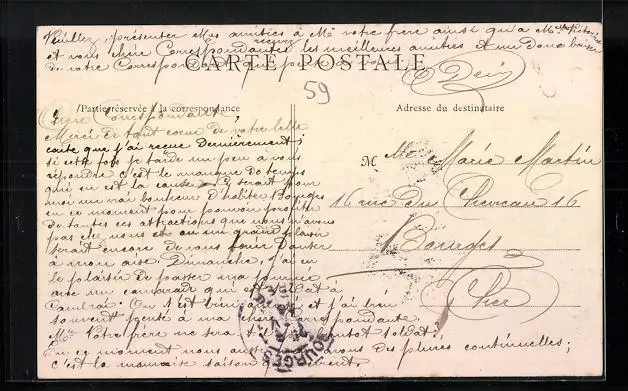 Veuillez présenter mes amitiés à Mr votre frère ainsi qu'à Me
et vous chère Correspondante recevez les meilleures amitiés et un doux baiser
de votre Correspondant qui pense
CARTE POSTALE
59
(Partie réservée à la correspondance
Adresse du destinataire
Chère Correspondante,
Merci de tout coeur de votre belle
carte que j'ai reçue Dernièrement;
si cette fois je tarde un peu à vous
répondre c'est le manque de temps
qui en est la cause. Ce serait pour
moi un vrai bonheur d'habiter Bourges
en ce moment pour pouvoir profiter
de toutes ces attractions que nous n'avons
pas chez nous et un grand plaisir
serait encore de vous faire Danser
à mon aise. Dimanche, j'ai eu
le plaisir de passer ma journée
avec un camarade qui est soldat à
Cambrai. On s'est bien amusé et j'ai bien
souvent pensé à ma chère Correspondante.
Mr Votre frère ne sera-t-il pas bientôt soldat?
En ce moment nous avons des pluies continuelles;
c'est la mauvaise saison
M Melle Marie Martin
16 rue du Chevreau 16
Bourges
Cher
BOURGES